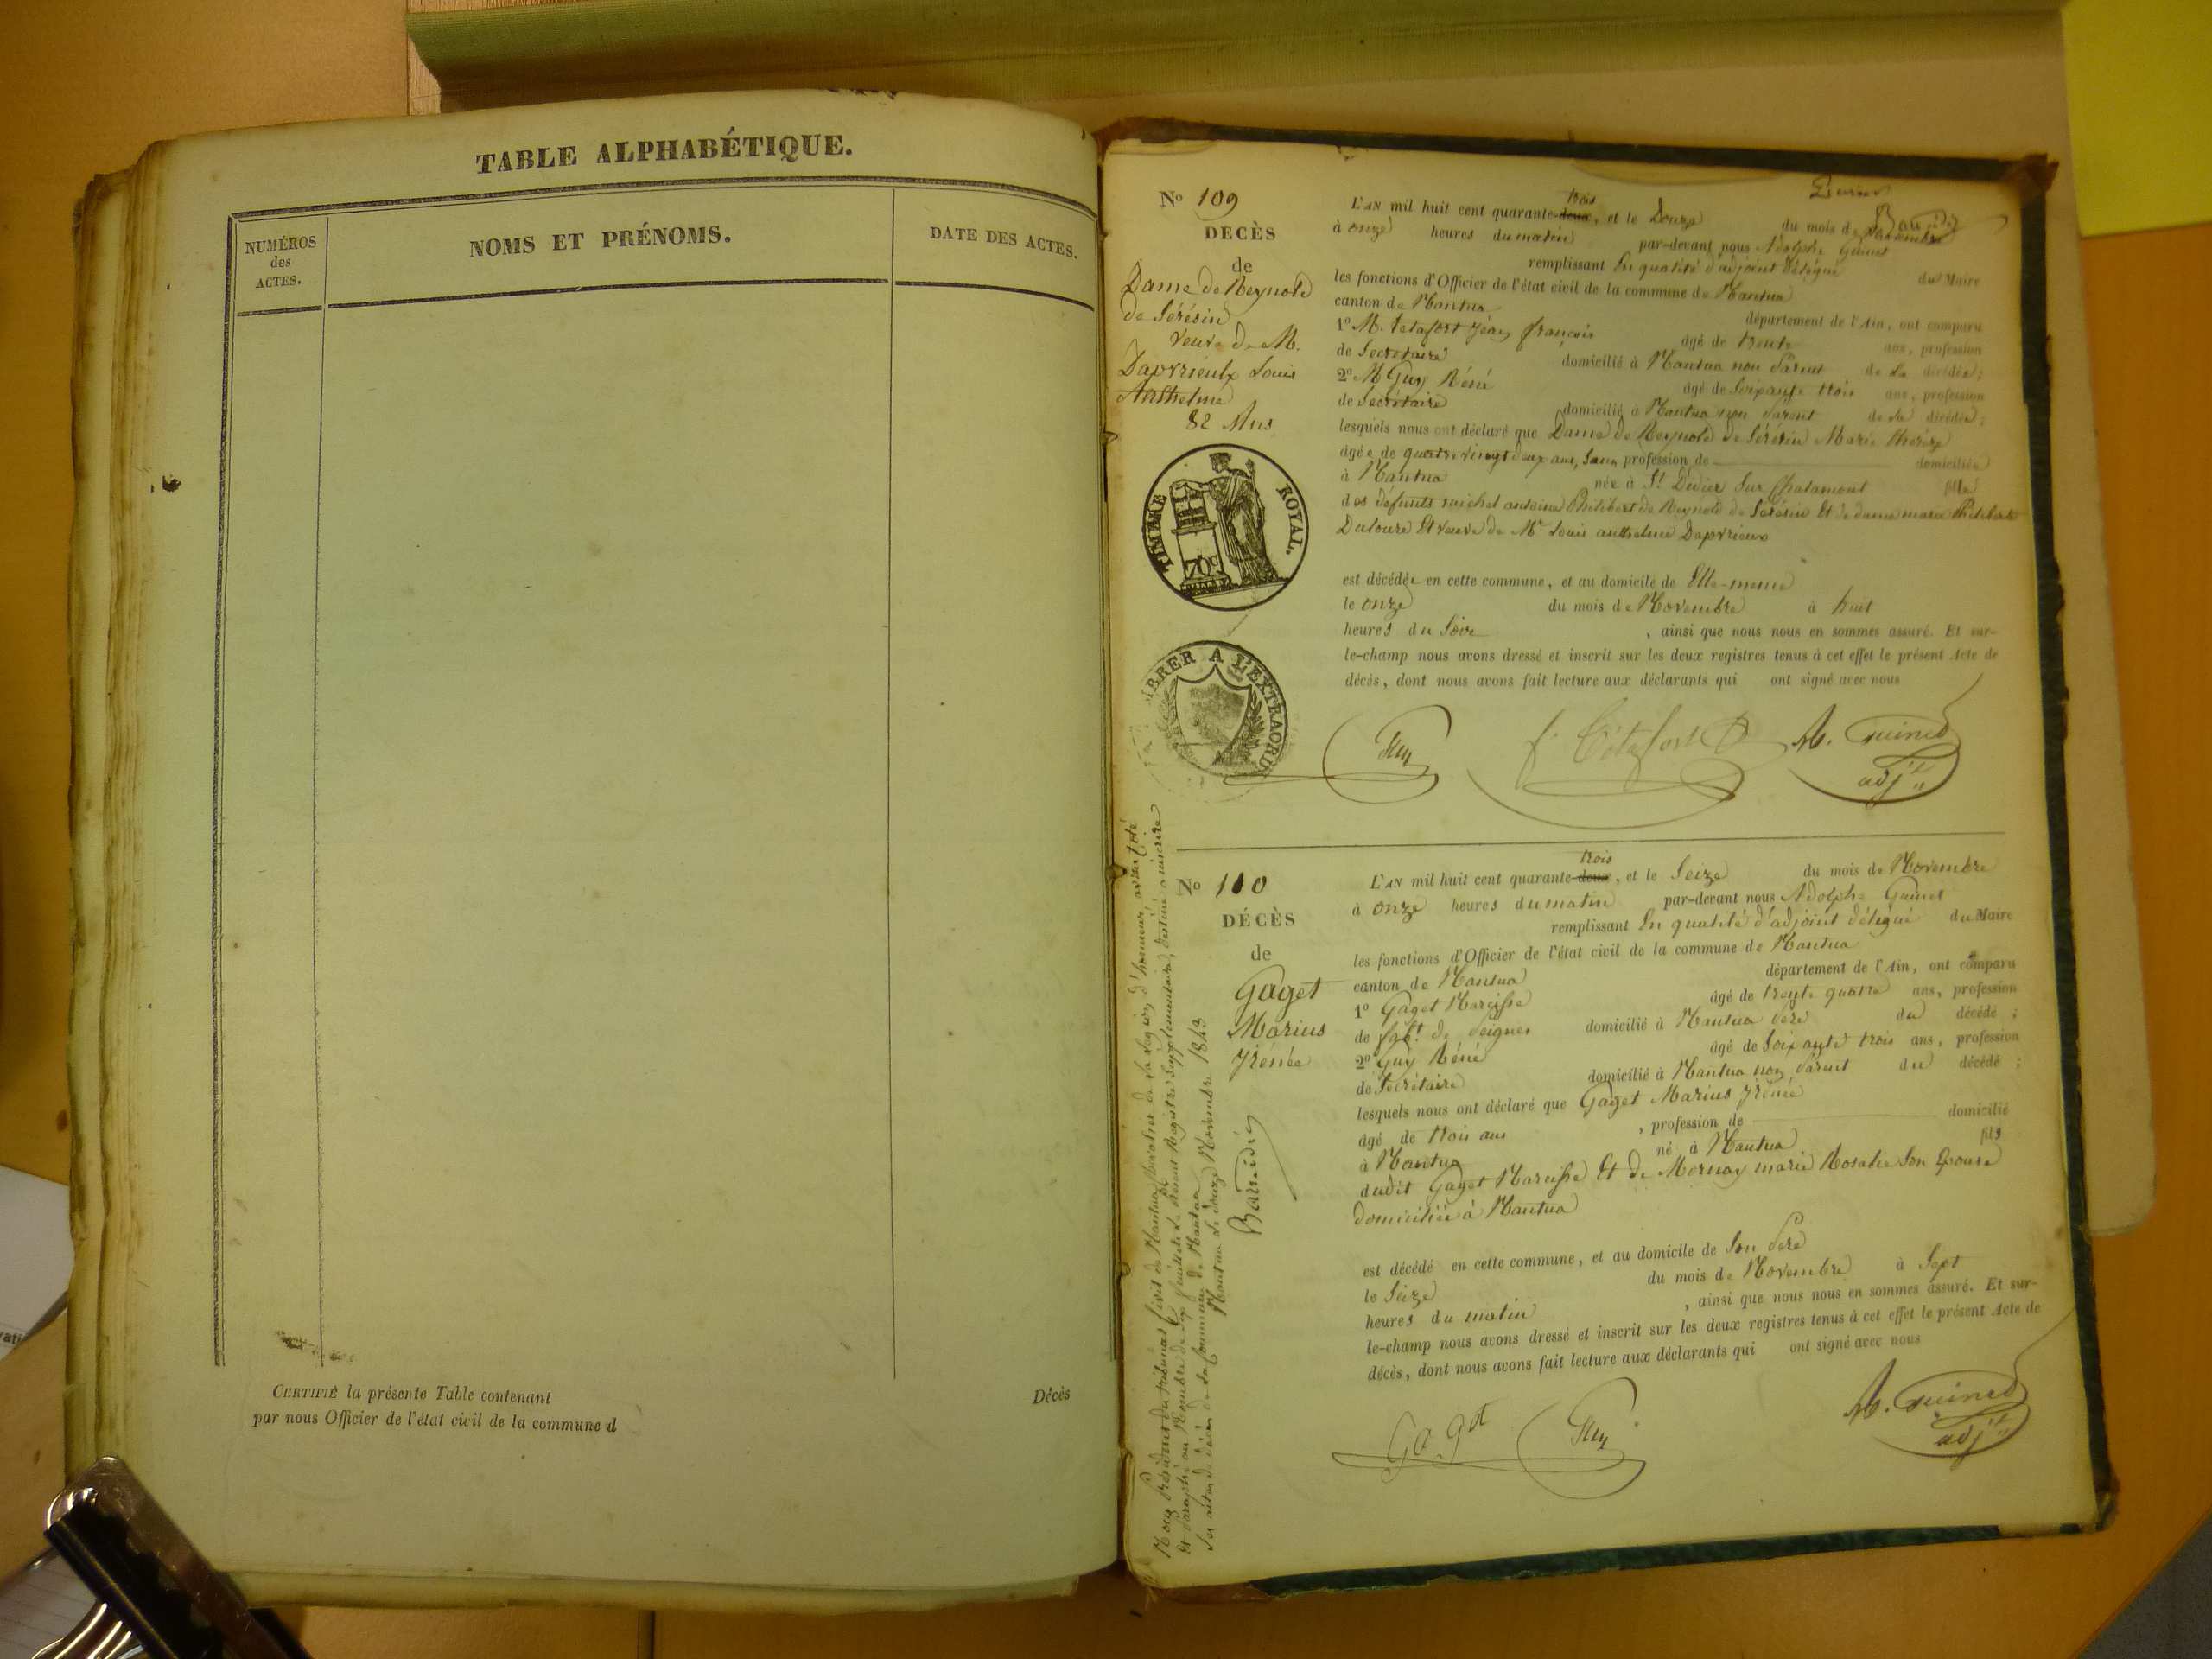 TABLE ALPHABÉTIQUE.
NUMÉROS
des
ACTES.
NOMS ET PRÉNOMS.
DATE DES ACTES.
CERTIFIÉ la présente Table contenant Décès
par nous Officier de l'état civil de la commune d
No 109
DÉCÈS
de
Dame de Reynold
de Sérésin
veuve de M.
Daprrieulx Louis
Anthelme
82 Ans
TIMBRE ROYAL.
70c
TIMBRER A L'EXTRAORD
L'AN mil huit cent quarante-deux trois, et le Douze du mois de Novembre
à onze heures du matin par-devant nous Adolphe Guinet
remplissant En qualité d'adjoint délégué du Maire
les fonctions d'Officier de l'état civil de la commune de Nantua
canton de Nantua département de l'Ain, ont comparu
1o M. Tetafort Jean françois agé de trente ans, profession
de Secretaire domicilié à Nantua non parent de La décédée;
2o M Guy Réné agé de Soixante trois ans, profession
de Secrétaire domicilié à Nantua non parent de La décédée;
lesquels nous ont déclaré que Dame de Reynold de Sérésin Marie thérèze
âgée de quatre vingt deux ans, Sans profession de domiciliée
à Nantua née à St Didier Sur Chalamont fille
des défunts michel antoine Philibert de Reynold de Sérésin Et de dame marie Philiberte
Duloure Et veuve de Mr Louis anthelme Daprrieux
est décédée en cette commune, et au domicile de Elle-meme
le onze du mois de Novembre à huit
heures du Soir, ainsi que nous nous en sommes assuré. Et sur-
le-champ nous avons dressé et inscrit sur les deux registres tenus à cet effet le présent Acte de
décès, dont nous avons fait lecture aux déclarants qui ont signé avec nous
Guy f. Tétafort A. Guinet
adjt
No 110
DÉCÈS
de
Gaget
Marius
Irénée
L'AN mil huit cent quarante-deux trois, et le Seize du mois de Novembre
à onze heures du matin par-devant nous Adolphe Guinet
remplissant En qualité d'adjoint délégué du Maire
les fonctions d'Officier de l'état civil de la commune de Nantua
canton de Nantua département de l'Ain, ont comparu
1o Gaget Narcisse âgé de trente quatre ans, profession
de fabt. de peignes domicilié à Nantua père du décédé;
2o Guy Réné âgé de Soixante trois ans, profession
de Secrétaire domicilié à Nantua non parent du décédé;
lesquels nous ont déclaré que Gaget Marius Irénée
âgé de trois ans, profession de domicilié
à Nantua né à Nantua fils
dudit Gaget Narcisse Et de Mornay marie Rosalie Son Epouse
domiciliée à Nantua
est décédé en cette commune, et au domicile de Son père
le Seize du mois de Novembre à Sept
heures du matin, ainsi que nous nous en sommes assuré. Et sur-
le-champ nous avons dressé et inscrit sur les deux registres tenus à cet effet le présent Acte de
décès, dont nous avons fait lecture aux déclarants qui ont signé avec nous
Gaget Guy A. Guinet
adjt
Nous Président du tribunal Civil de Nantua, chevalier de la Légion d'honneur, avons Coté
Et Paraphé au Nombre de feuillets Le présent Registre Supplémentaire, destiné a inscrire
Les actes de décès de La Commune de Nantua
Nantua Le Douze Novembre 1843